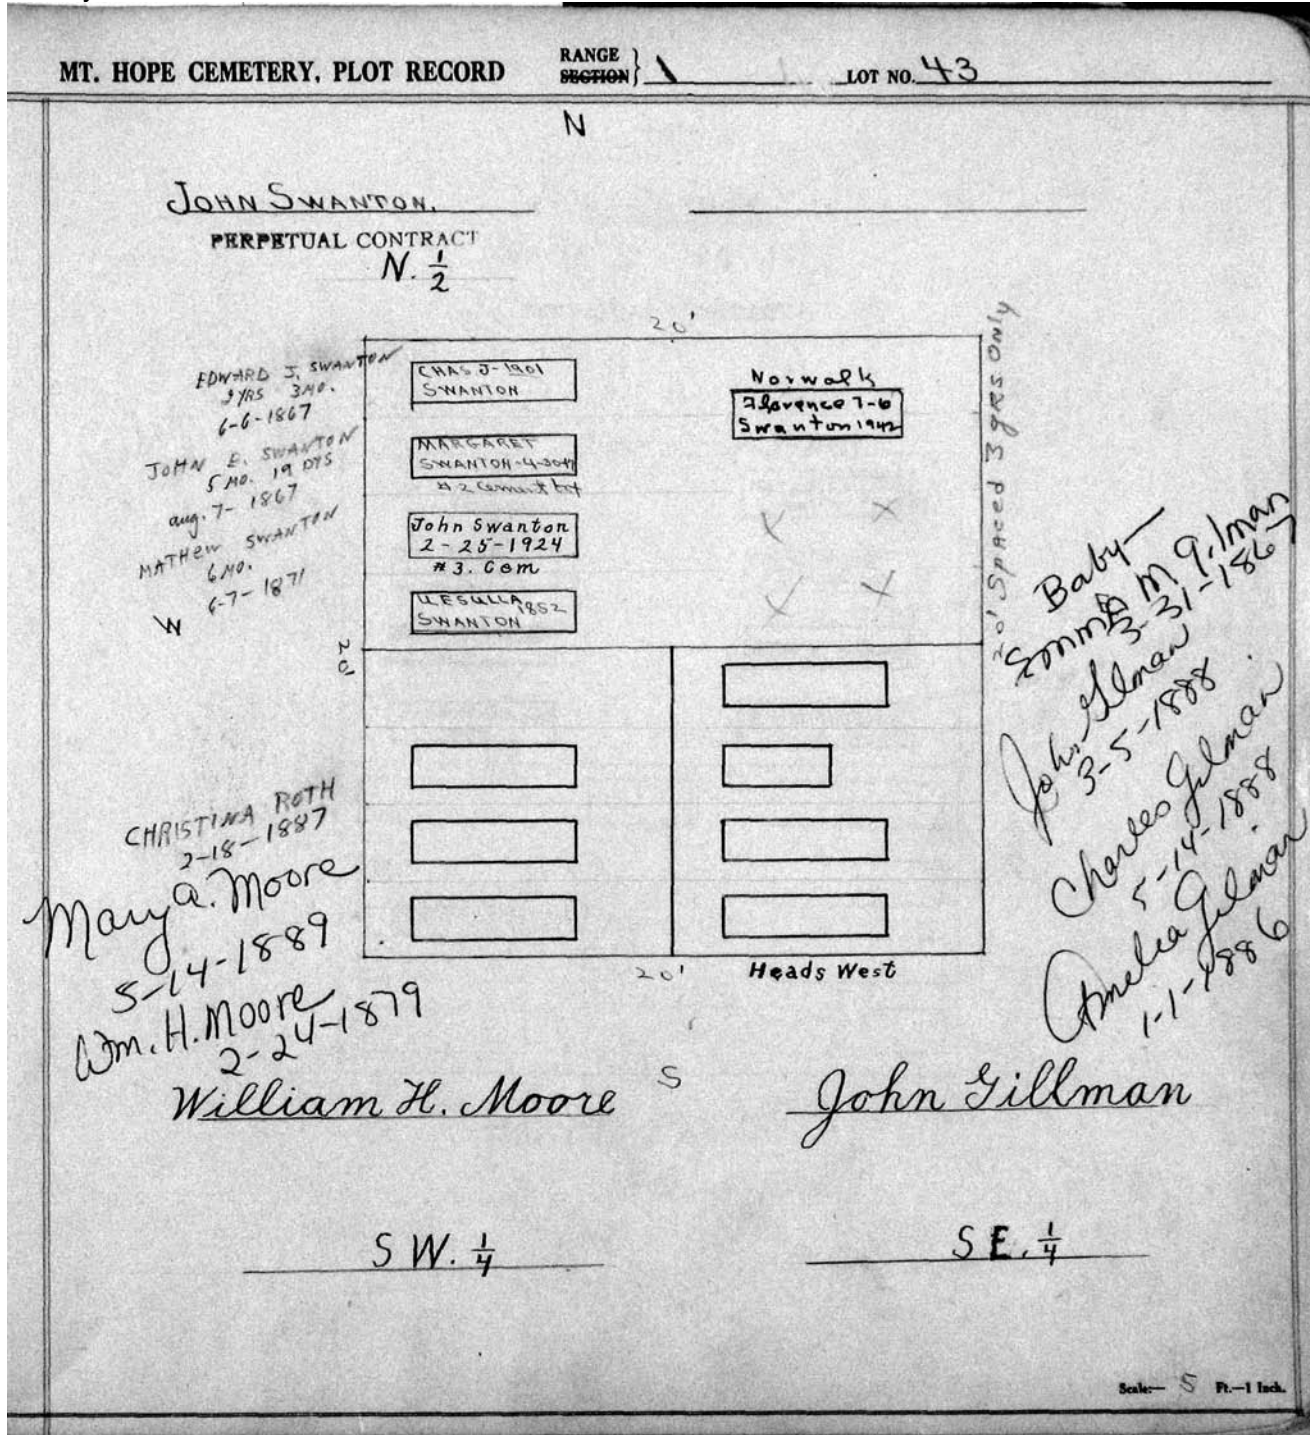 MT. HOPE CEMETERY, PLOT RECORD
RANGE
SECTION
1
LOT NO. 43
N
JOHN SWANTON.
PERPETUAL CONTRACT
N. 1/2
20'
EDWARD J. SWANTON
2 YRS 3 MO.
6-6-1867
JOHN E. SWANTON
5 MO. 19 DYS
aug. 7-1867
MATHEW SWANTON
6 MO.
6-7-1871
W
CHAS J-1901
SWANTON
MARGARET
SWANTON-4-
#2 Cement
John Swanton
2-25-1924
#3. Cem
1852
SWANTON
Norwalk
Florence 7-6
Swanton 1942
20' Spaced 3 grs Only
20'
Baby
Emma M Gilman
3-31-1867
John Gilman
3-5-1888
Charles Gilman
5-14-1888
Amelia Gilman
1-1-1886
CHRISTINA ROTH
2-18-1887
Mary A. Moore
5-14-1889
Wm. H. Moore
2-24-1879
20'
Heads West
S
William H. Moore
John Gillman
S W. 1/4
S E. 1/4
Scale:— 5 Ft.—1 Inch.